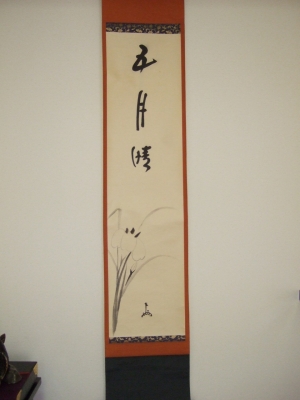 五月晴